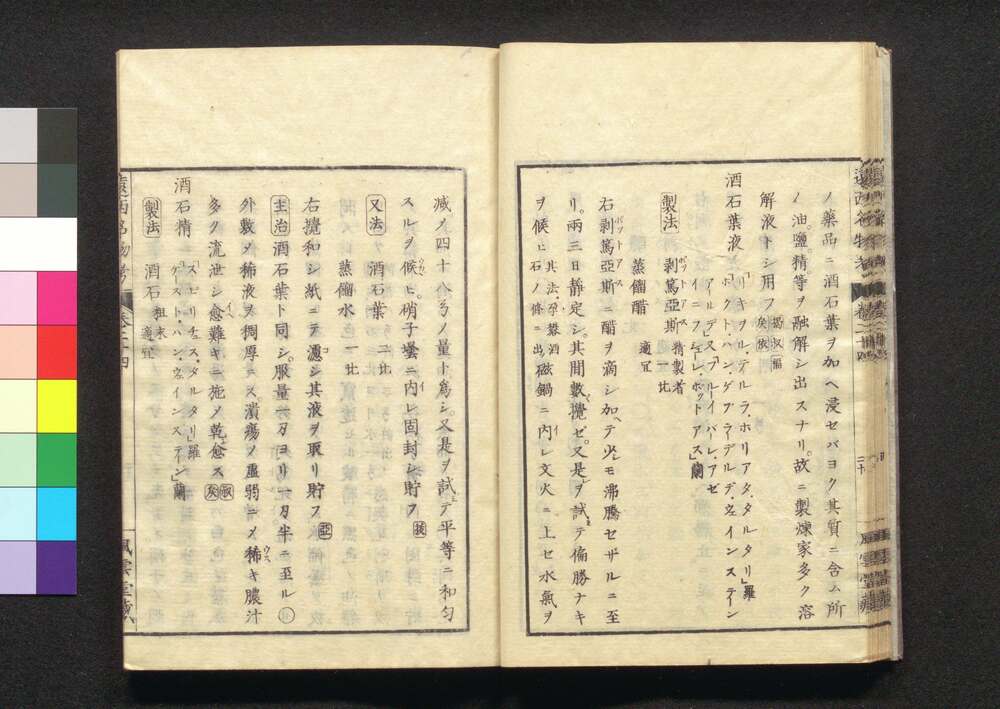 ノ藥品ニ酒石葉ヲ加ヘ浸セバヨク其質ニ含ム所
ノ油鹽精等ヲ融解シ出スナリ。故ニ製煉家多ク溶
解液トシ用フ
酒石葉液 「リキヲル・テルラ、ホリアタ、タルタリ」羅
「ホクト・ハン、ゲブラーデルデ、ウェインステーン
製法 剥篤亞斯 ポットアス 精製者 一比
蒸餾醋 適宜
右剥篤亞斯 ポットアス ニ醋ヲ滴シ加ヘテ少モ沸騰セザルニ至
リ。兩三日静定シ。其間數攪ゼ。又是ヲ試テ偏勝ナキ
ヲ候ヒ 其法、孕礬酒石ノ條ニ出 磁鍋ニ内レ文火ニ上セ水氣ヲ
減ノ四十八ゟノ量ト爲シ。又是ヲ試テ平等ニ和匀
スルヲ候ヒ。硝子壜ニ内レ固封シ貯フ
又法 酒石葉 二比
蒸餾水 一比
右攪和シ紙ニテ濾シ其液ヲ取リ貯フ
主治 酒石葉ト同シ。服量
外敷ノ稀液ヲ稠厚ニス。潰瘍ノ虚弱ニメ稀キ膿汁
多ク流泄シ愈難キニ施メ乾愈ス
酒石精 「スピリチュス・タルタリ」羅
「ゲースト・ハン、ウェインステーン」蘭
製法 酒石 粗末 適宜
遠西名物考